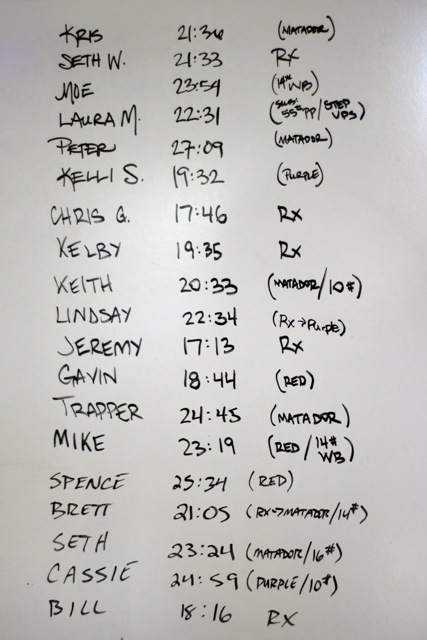 KRIS 21:36 (MATADOR)
SETH W. 21:33 Rx
MOE 23:54 (14# WB)
LAURA M. 22:31 (SUB: 55# PP/STEP UPS)
PETER 27:09 (MATADOR)
KELLI S. 19:32 (PURPLE)
CHRIS G. 17:46 Rx
KELBY 19:35 Rx
KEITH 20:33 (MATADOR/10#)
LINDSAY 22:34 (Rx→Purple)
JEREMY 17:13 Rx
GAVIN 18:44 (RED)
TRAPPER 24:45 (MATADOR)
MIKE 23:19 (RED/14# WB)
SPENCE 25:34 (RED)
BRETT 21:05 (RX→MATADOR/14#)
SETH 23:24 (MATADOR/16#)
CASSIE 24:59 (PURPLE/10#)
BILL 18:16 RX